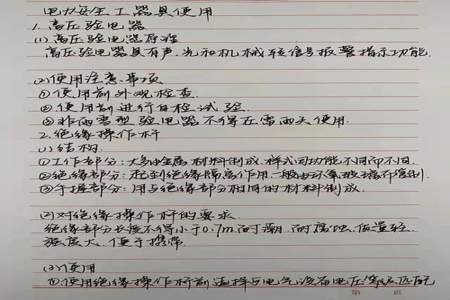 电力安全工器具使用
1. 高压验电器
(1) 高压验电器原理
高压验电器具有声、光和机械转信号报警指示功能.
(2) 使用注意事项
①使用前外观检查.
②使用前进行自检试验
③非雨雪型验电器不得在雷雨天使用.
2. 绝缘操作杆
(1) 结构
①工作部分: 大多以金属材料制成. 样式因功能不同而不同.
②绝缘部分: 起到绝缘隔离作用. 一般由环氧玻璃布管制.
③手握部分: 用与绝缘部分相同的材料制成.
(2) 对绝缘操作杆的要求
绝缘部分长度不得小于0.7m. 耐潮. 耐腐蚀. 质量轻.
强度大. 便于携带.
(3) 使用
①使用绝缘操作杆前选择与电气设备电压等级匹配